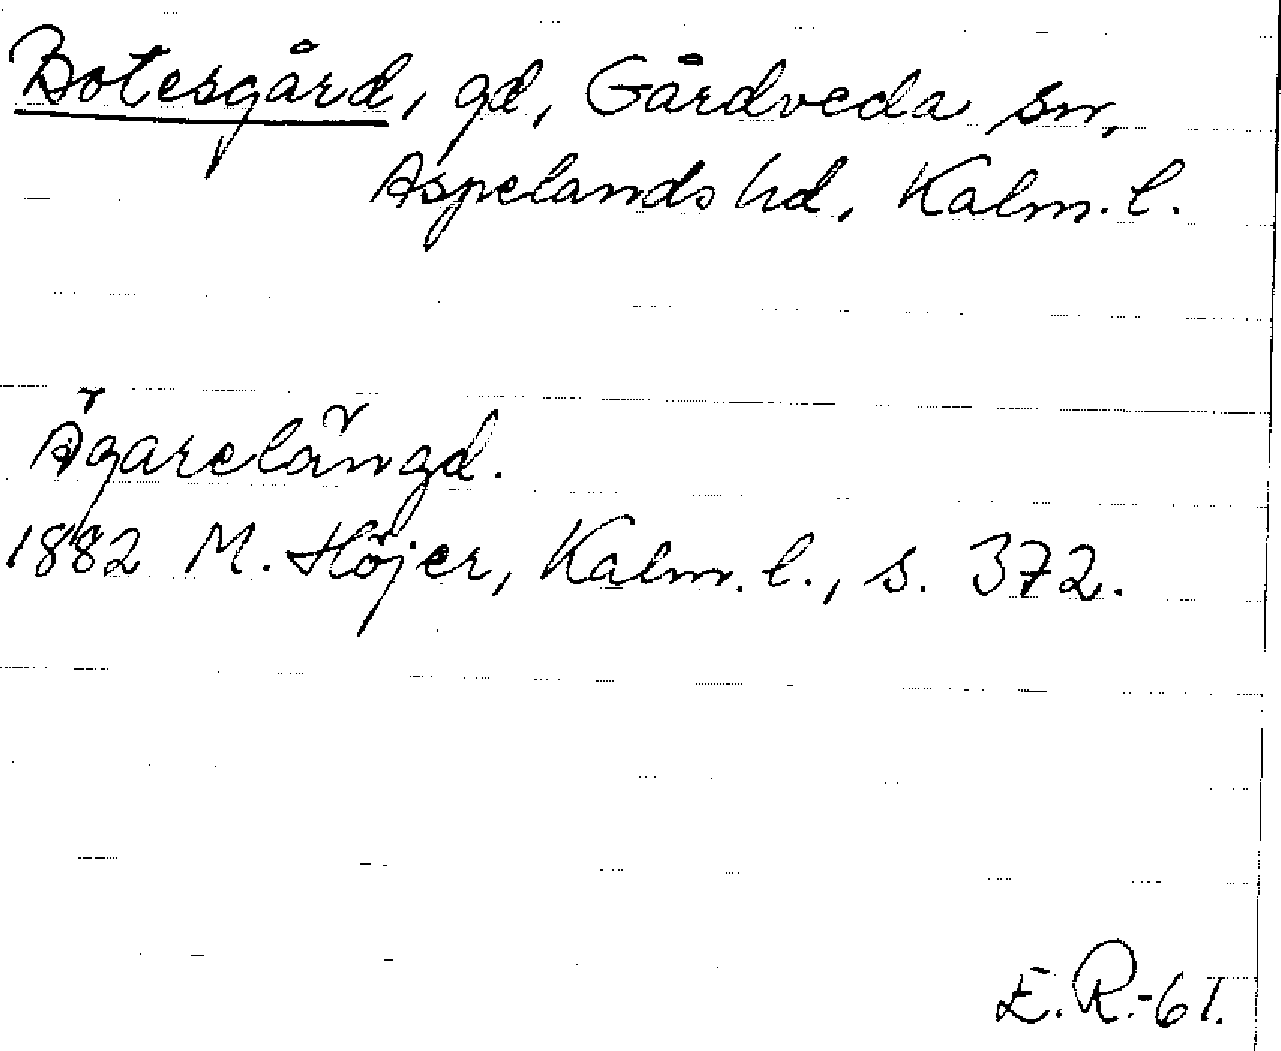 Botesgård, gd, Gårdveda sn,
Aspelands hd, Kalm. l.
Ägarelängd.
1882 M. Höjer, Kalm. l., s. 372.
E.R.-61.